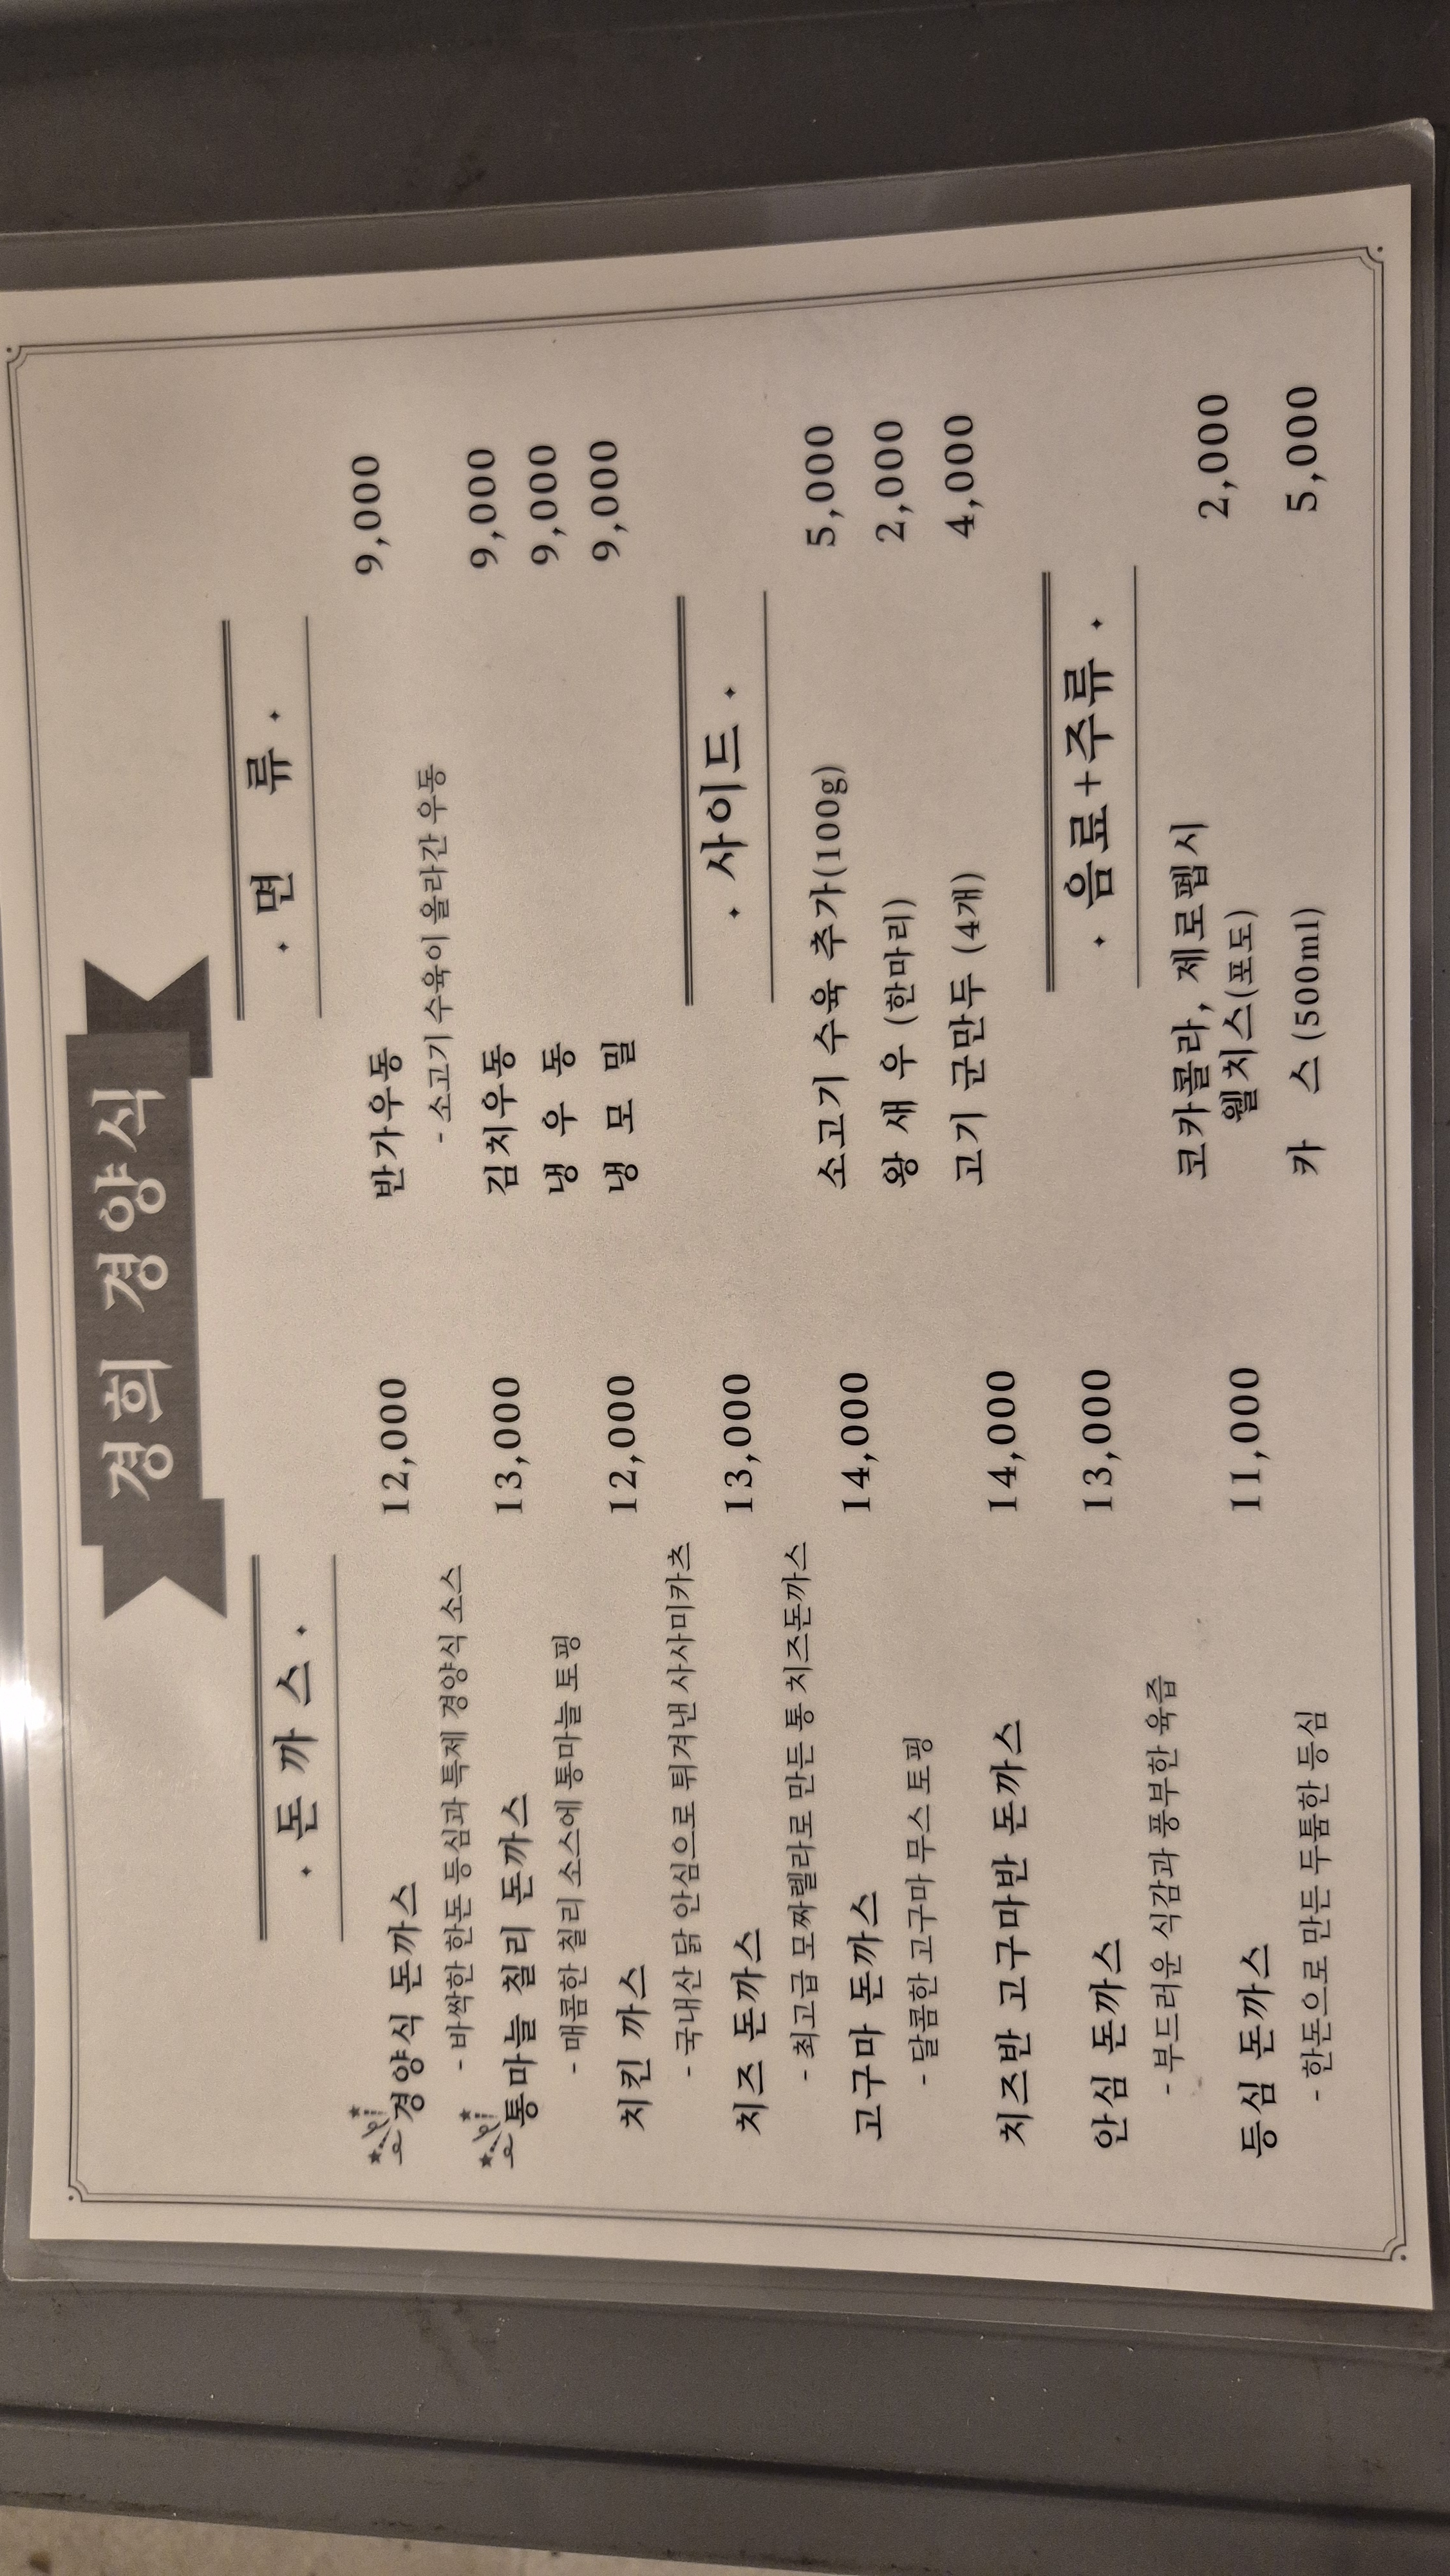 경희 경양식
돈 까 스
경양식 돈까스 12,000
- 바싹한 한돈 등심과 특제 경양식 소스
통마늘 칠리 돈까스 13,000
- 매콤한 칠리 소스에 통마늘 토핑
치킨 까스 12,000
- 국내산 닭 안심으로 튀겨낸 사사미카츠
치즈 돈까스 13,000
- 최고급 모짜렐라로 만든 통 치즈돈까스
고구마 돈까스 14,000
- 달콤한 고구마 무스 토핑
치즈반 고구마반 돈까스 14,000
안심 돈까스 13,000
- 부드러운 식감과 풍부한 육즙
등심 돈까스 11,000
- 한돈으로 만든 두툼한 등심
면 류
반가우동 9,000
- 소고기 수육이 올라간 우동
김치우동 9,000
냉 우 동 9,000
냉 모 밀 9,000
사이드
소고기 수육 추가(100g) 5,000
왕 새 우 (한마리) 2,000
고기 군만두 (4개) 4,000
음료+주류
코카콜라, 제로펩시 2,000
웰치스(포도)
카 스 (500ml) 5,000